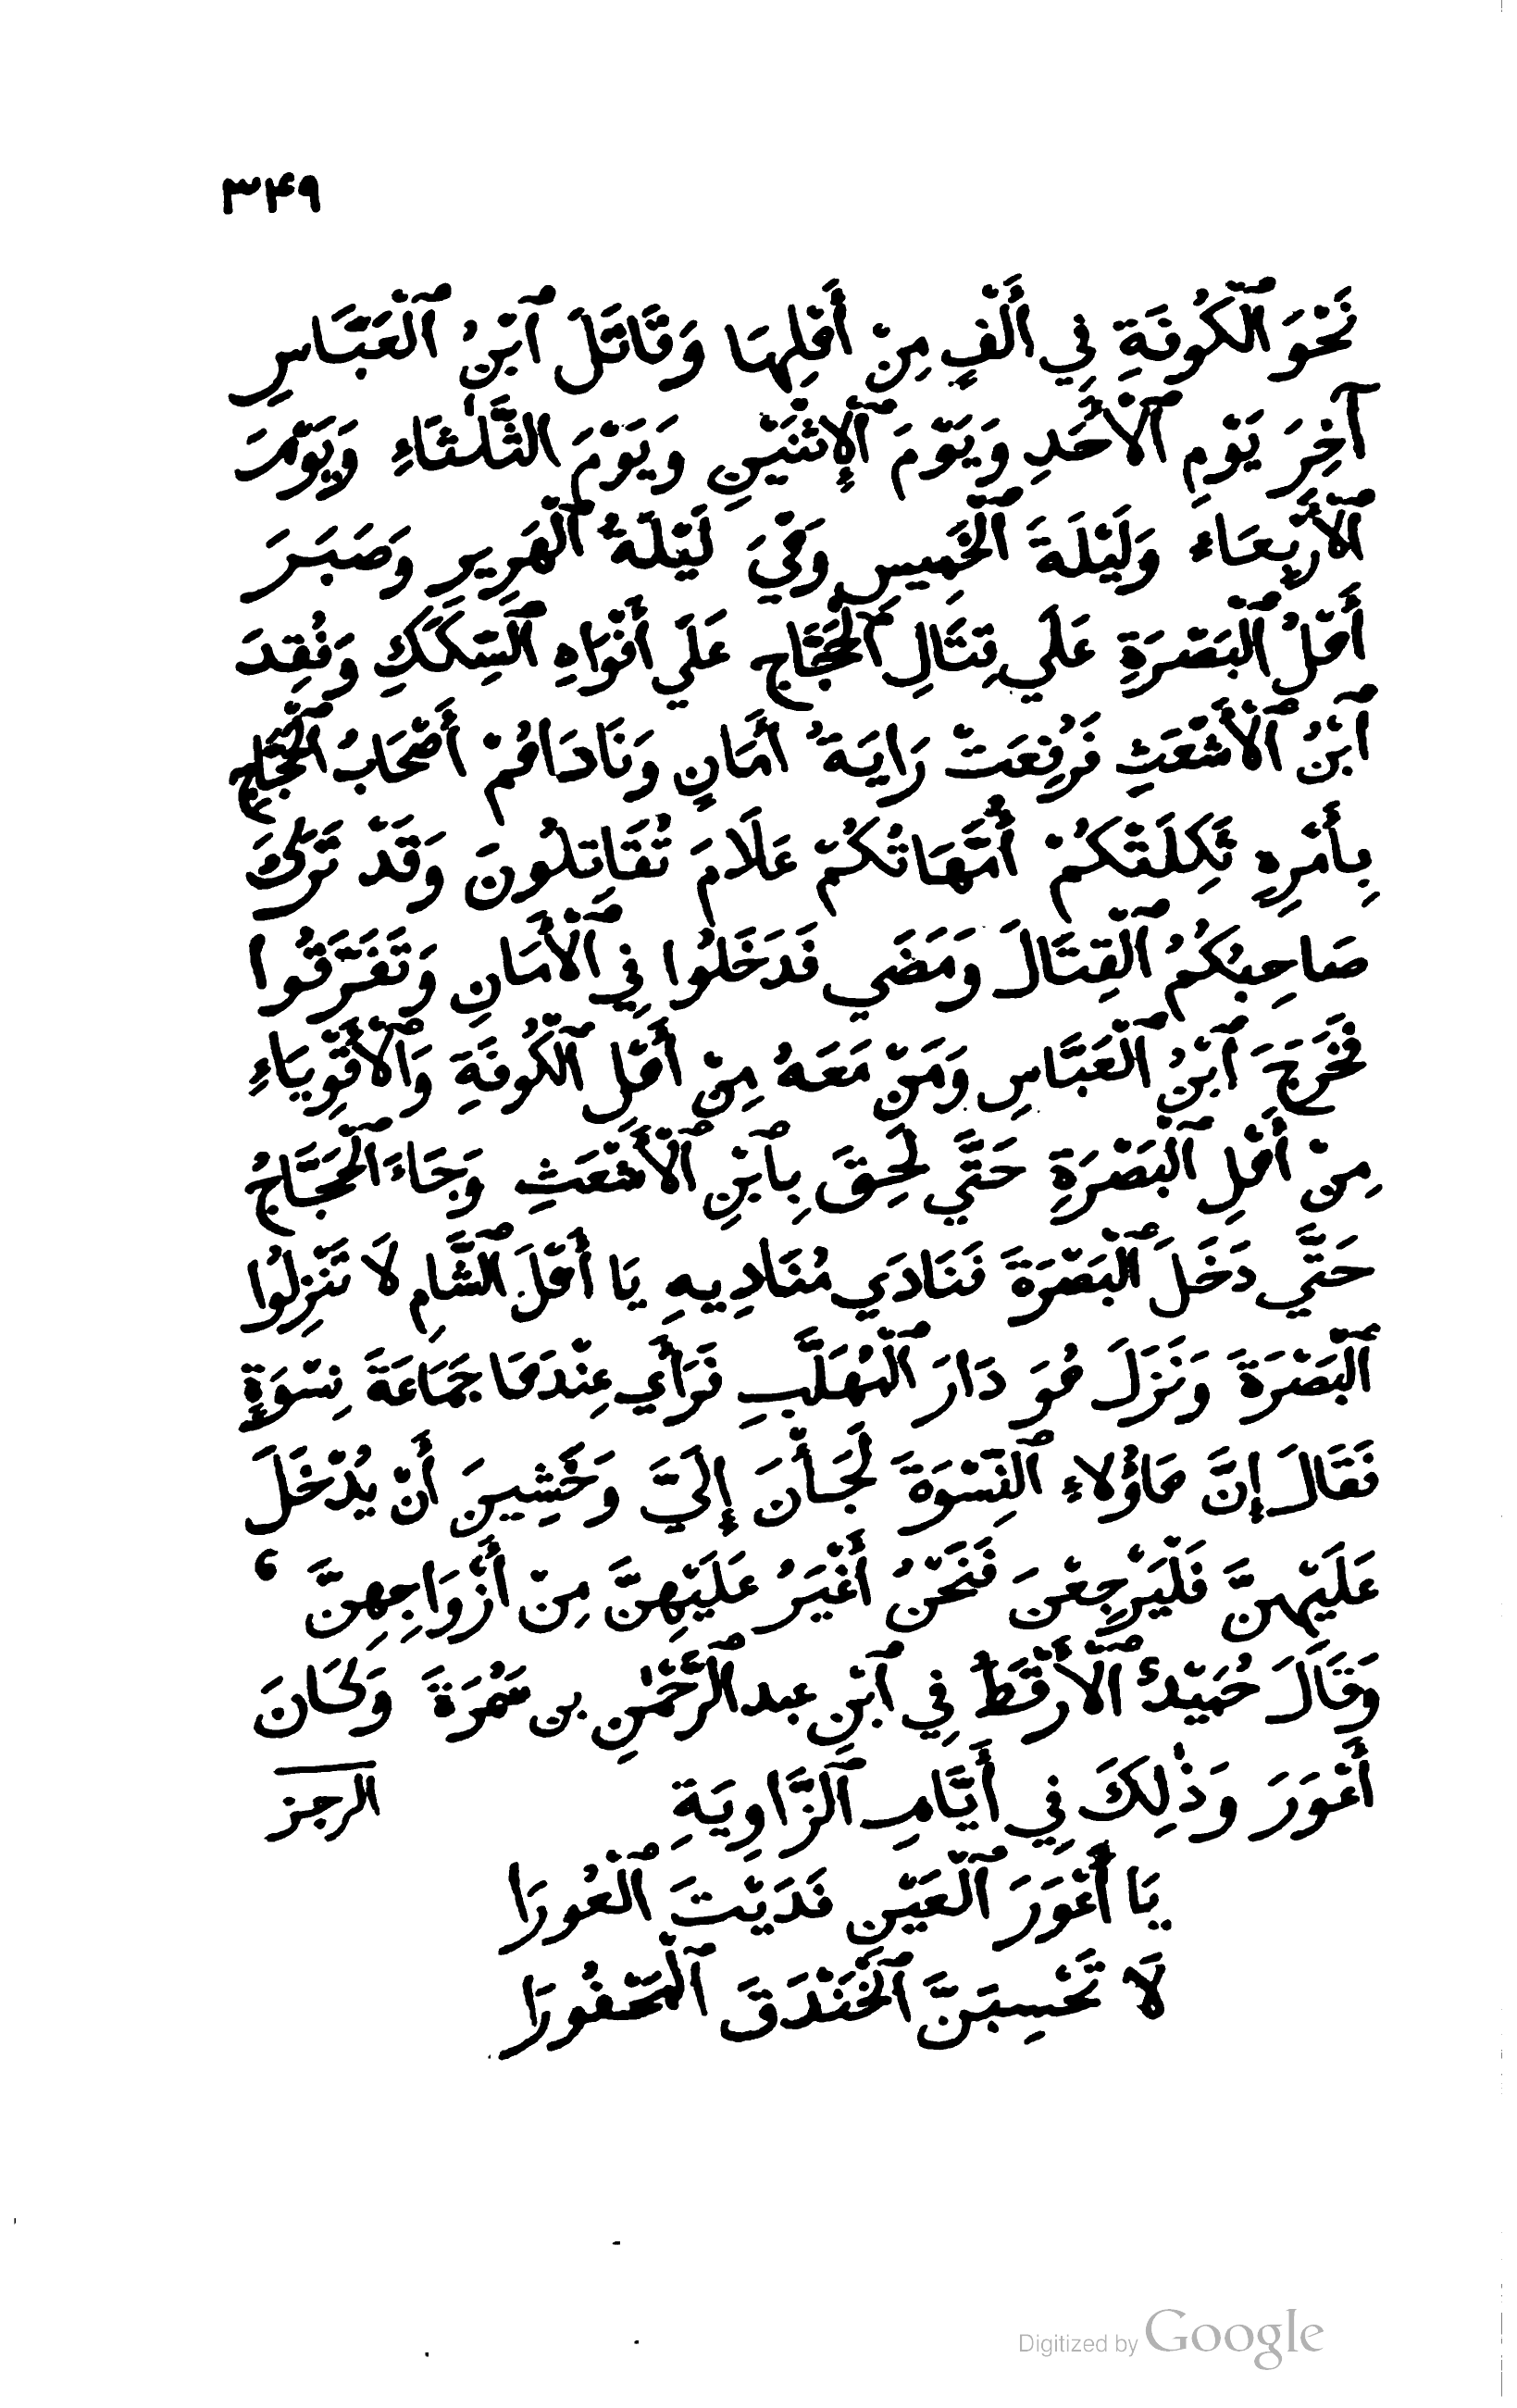 ٣٤٩
نَحْوَ ٱلْكُوفَةِ فِي أَلْفٍ مِنْ أَهْلِهَا وَقَاتَلَ ٱبْنُ ٱلْعَبَّاسِ
آخِرَ يَوْمِ ٱلْأَحَدِ وَيَوْمَ ٱلْإِثْنَيْنِ وَيَوْمَ الثَّلٰثَاءِ وَيَوْمَ
ٱلْأَرْبِعَاءِ وَلَيْلَةَ ٱلْخَمِيسِ وَهْيَ لَيْلَةُ ٱلْهَرِيرِ وَصَبَرَ
أَهْلُ ٱلْبَصْرَةِ عَلَي قِتَالِ ٱلْحَجَّاجِ عَلَي أَفْوَاهِ ٱلسِّكَكِ وَفُقِدَ
ٱبْنُ ٱلْأَشْعَثِ فَرُفِعَتْ رَايَةُ أَمَانٍ وَنَادَاهُمْ أَصْحَابُ ٱلْحَجَّاجِ
بِأَمْرِهِ ثَكِلَتْكُمْ أُمَّهَاتُكُمْ عَلَامَ تُقَاتِلُونَ وَقَدْ تَرَكَ
صَاحِبُكُمُ ٱلْقِتَالَ وَمَضَي فَدَخَلُوا فِي ٱلْأَمَانِ وَتَفَرَّقُوا
فَخَرَجَ ٱبْنُ ٱلْعَبَّاسِ وَمَنْ مَعَهُ مِنْ أَهْلِ ٱلْكُوفَةِ وَٱلْأَقْوِيَاءِ
مِنْ أَهْلِ ٱلْبَصْرَةِ حَتَّي لَحِقَ بِٱبْنِ ٱلْأَشْعَثِ وَجَاءَ ٱلْحَجَّاجُ
حَتَّي دَخَلَ ٱلْبَصْرَةَ فَنَادَي مُنَادِيهِ يَا أَهْلَ ٱلشَّامِ لَا تَنْزِلُوا
ٱلْبَصْرَةَ وَنَزَلَ هُوَ دَارَ ٱلْمُهَلَّبِ فَرَأَي عِنْدَهَا جَمَاعَةَ نِسْوَةٍ
فَقَالَ إِنَّ هَاؤُلَاءِ ٱلنِّسْوَةَ لَجَأْنَ إِلَيَّ وَخَشِينَ أَنْ يُدْخَلَ
عَلَيْهِنَّ فَلْيَرْجِعْنَ فَنَحْنُ أَغْيَرُ عَلَيْهِنَّ مِنْ أَزْوَاجِهِنَّ ،
وَقَالَ حُمَيْدٌ ٱلْأَرْقَطُ فِي ٱبْنِ عبد ٱلرَّحْمٰنِ بن سَمُرَةَ وَكَانَ
أَعْوَرَ وَذٰلِكَ فِي أَيَّامِ ٱلزَّاوِيَةِ الرجز
يَا أَعْوَرَ ٱلْعَيْنِ فَدَيْتَ ٱلْعُورَا
لَا تَحْسِبَنَّ ٱلْخَنْدَقَ ٱلْمَحْفُورَا
Digitized by Google